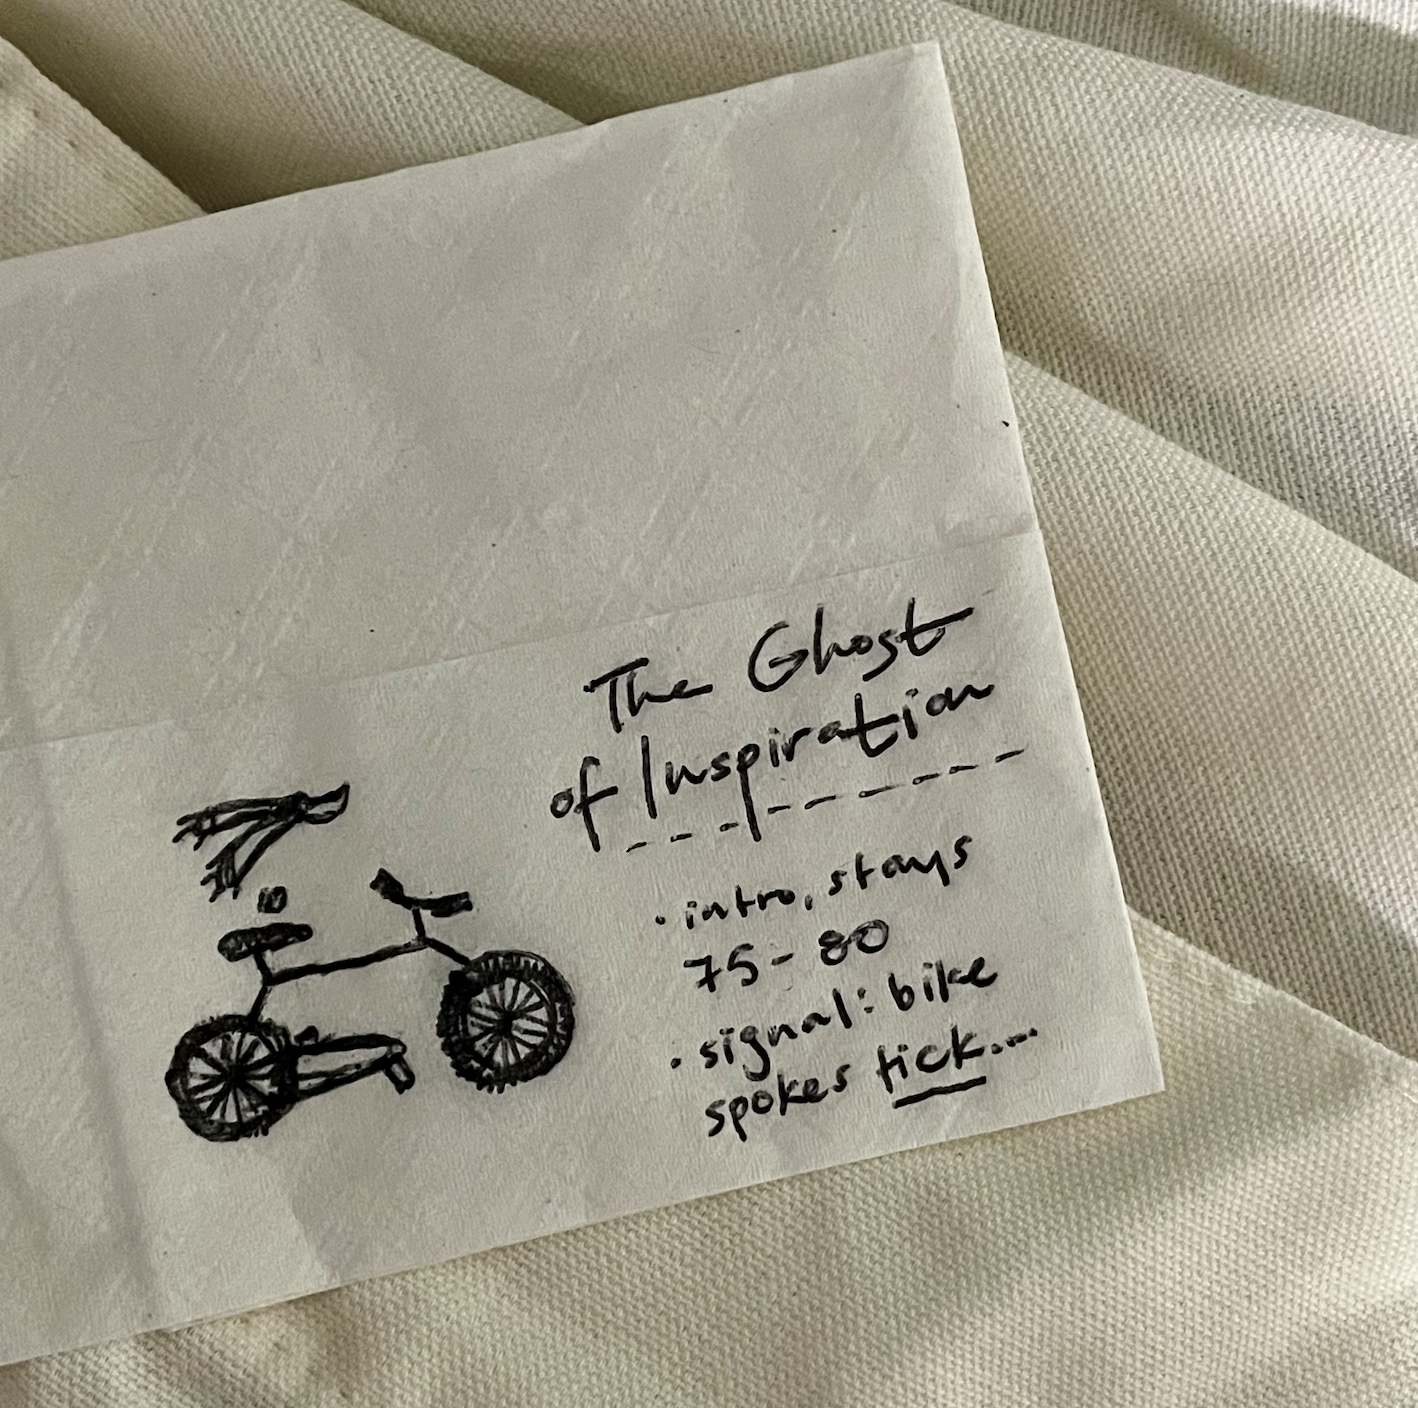 The Ghost
of Inspiration
• intro, stays
75-80
• signal: bike
spokes tick...